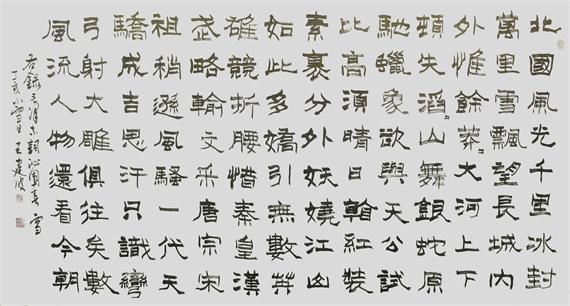 北國風光千里冰封
萬里雪飄望長城內
外惟餘莽〻大河上下
頓失滔〻山舞銀蛇原
馳蠟象欲與天公試
比高須晴日看紅裝
素裹分外妖嬈江山
如此多嬌引無數英
雄競折腰惜秦皇漢
武略輸文采唐宗宋
祖稍遜風騷一代天
驕成吉思汗只識彎
弓射大雕俱往矣數
風流人物還看今朝
右錄毛澤東詞沁園春雪
丁亥小雪日 王建波